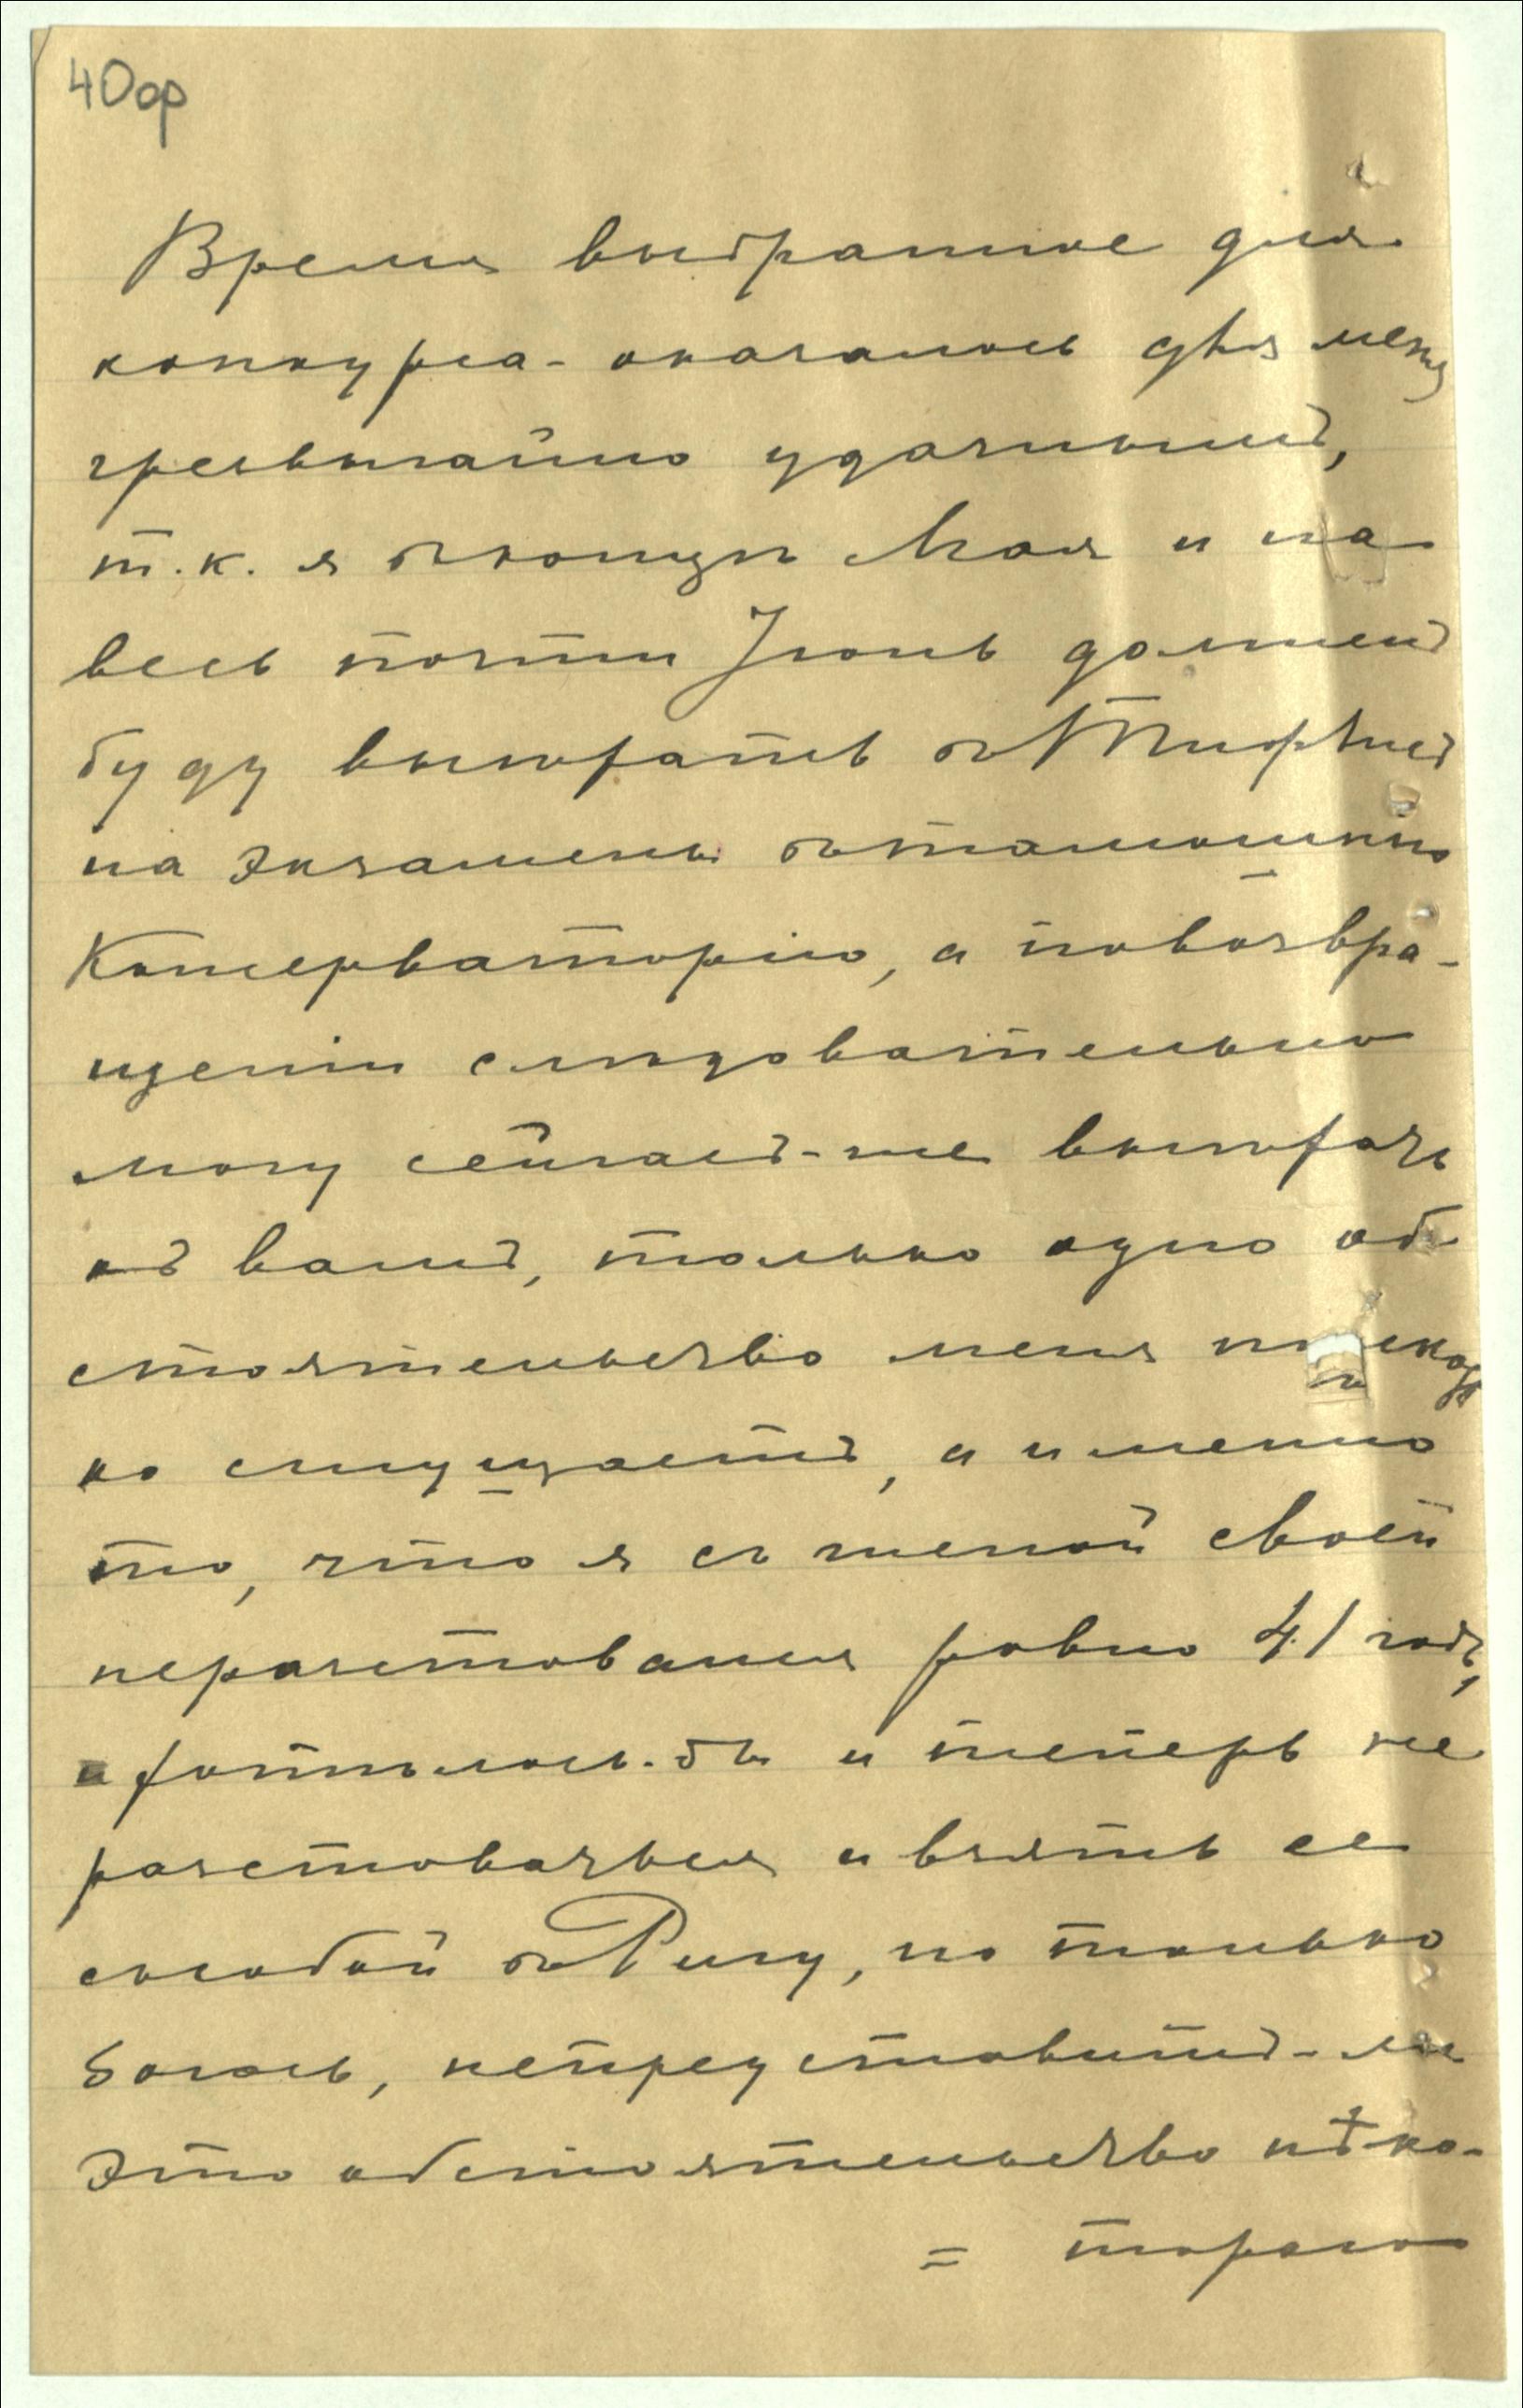 40ор
Время выбранное для
конкурса - оказалось для меня
чрезвычайно удачнымъ,
т.к. я въ концѣ Мая и на
весь почти Іюнь долженъ
буду выѣхать въ Тифлисъ
на экзамены въ тамошнюю
Консерваторію, а по возвра-
щеніи слѣдовательно
могу сейчасъ-же выѣхать
къ вамъ, только одно об-
стоятельство меня нѣсколь
ко смущаетъ, а именно
то, что я съ женой своей
неразставался ровно 41 годъ,
и хотѣлось-бы и теперь не
разставаться и взять ее
съ собой въ Ригу, но только
боюсь, непредставитъ-ли
это обстоятельство нѣко-
= тораго